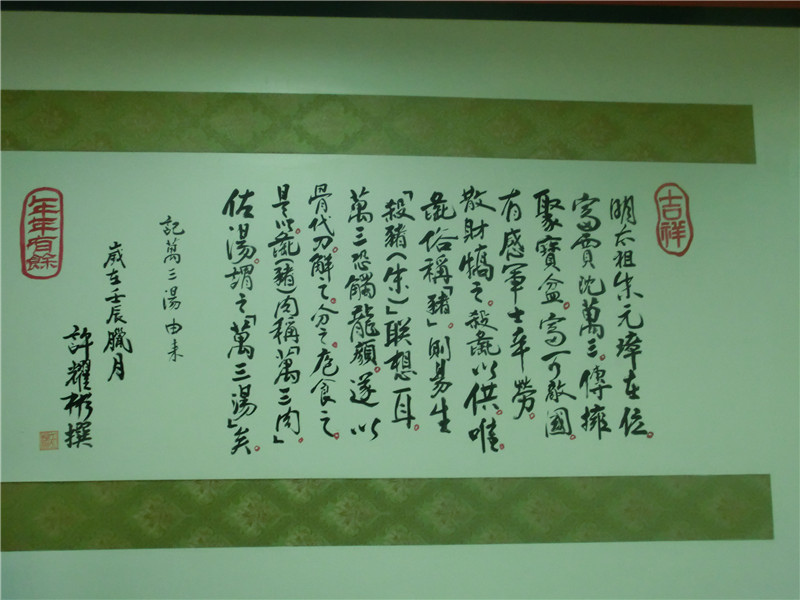 吉祥
明太祖朱元璋在位。
富賈沈萬三。傳擁
聚寶盆。富可敵國。
有感軍士辛勞。
散財犒之。殺彘以供。唯
彘俗稱「豬」。則易生
「殺豬(朱)」聯想耳。
萬三恐觸龍顏。遂以
骨代刀解之。分之。庖食之。
是以彘(豬)肉稱「萬三肉」。
佐湯。謂之「萬三湯」矣。
記萬三湯由来
歲在壬辰臘月
許耀彬撰
年年有餘